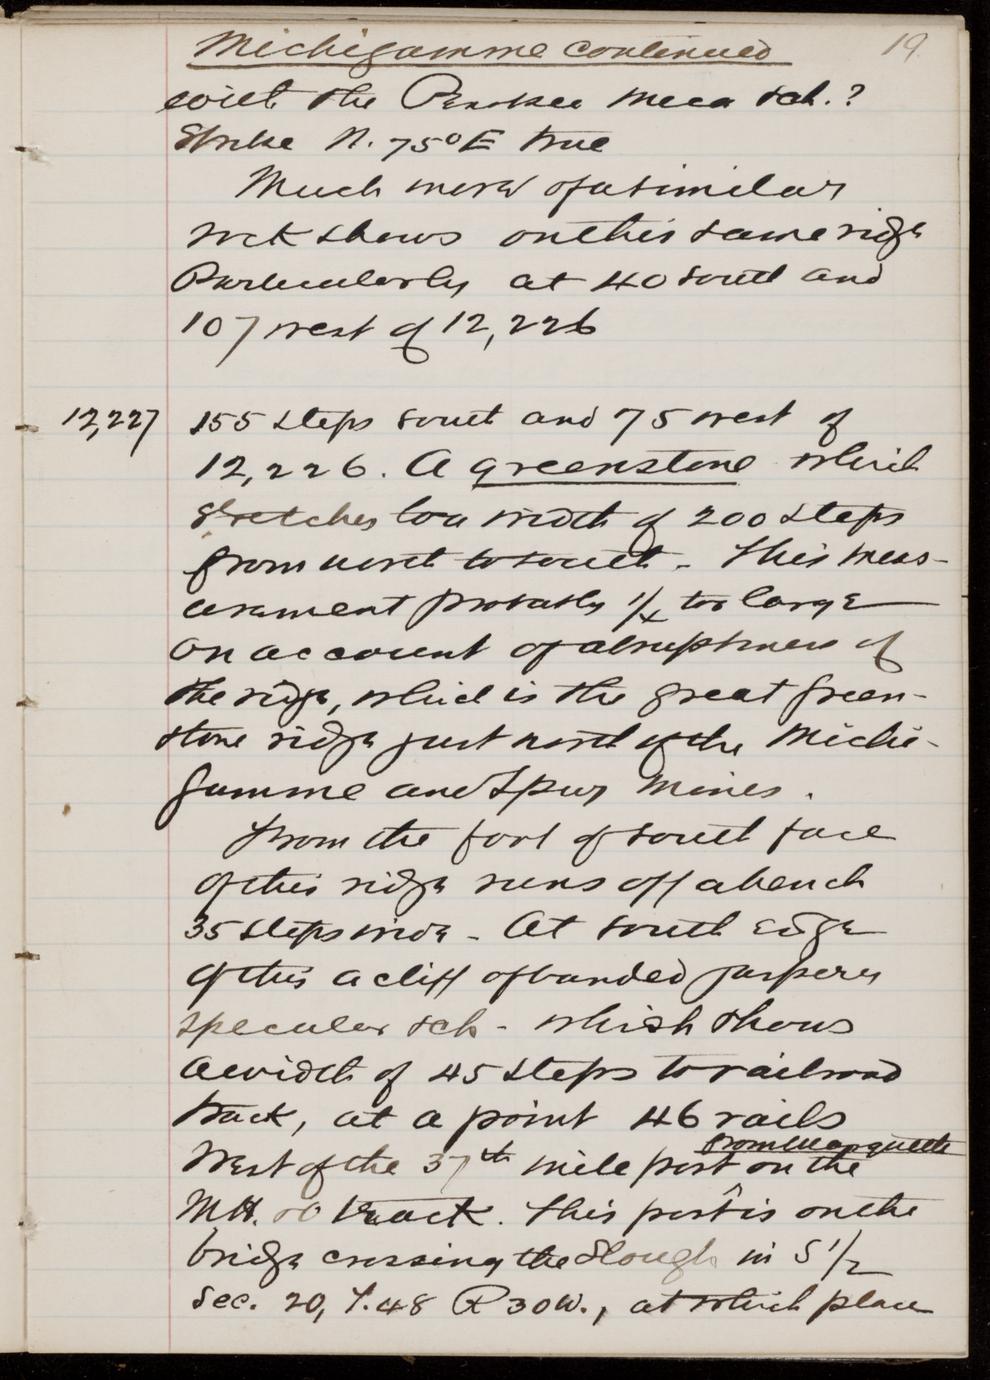 Michigamme continued 19.
with the Penokee mica sch.?
Strike N. 75° E true
Much more of a similar
rock shows on this same ridge
Particularly at 40 south and
107 west of 12,226
12,227 155 steps south and 75 west of
12,226. A greenstone which
stretches to a width of 200 steps
from north to south. This meas-
urement probably 1/4 too large
on account of abruptness of
the ridge, which is the great green-
stone ridge just north of the Michi-
gamme and Spurr Mines.
From the foot of south face
of this ridge runs off a bench
35 steps wide - At south edge
of this a cliff of banded jaspery
specular sch - which shows
a width of 45 steps to railroad
track, at a point 46 rails
from Marquette
West of the 37th mile post on the
M.H. & O track. This post is on the
bridge crossing the slough in S 1/2
Sec. 20, T. 48 R 30 W., at which place